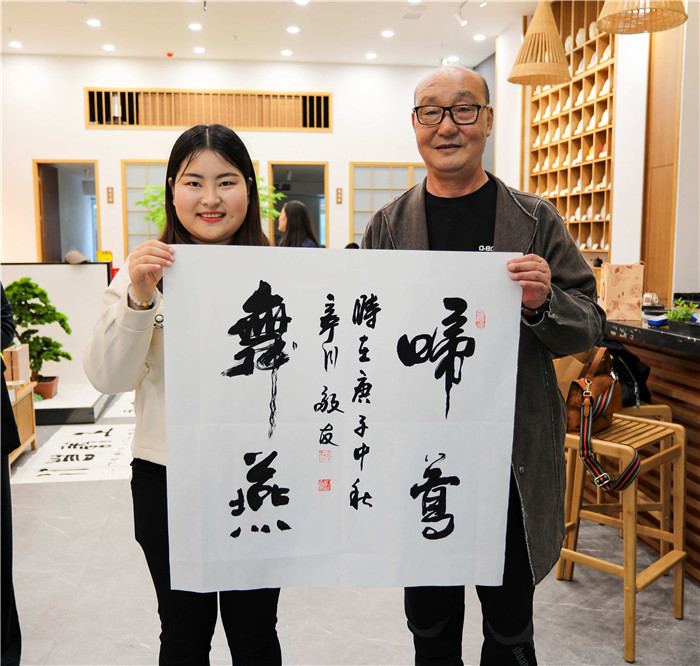 啼鶯
時在庚子中秋
川 友
舞燕